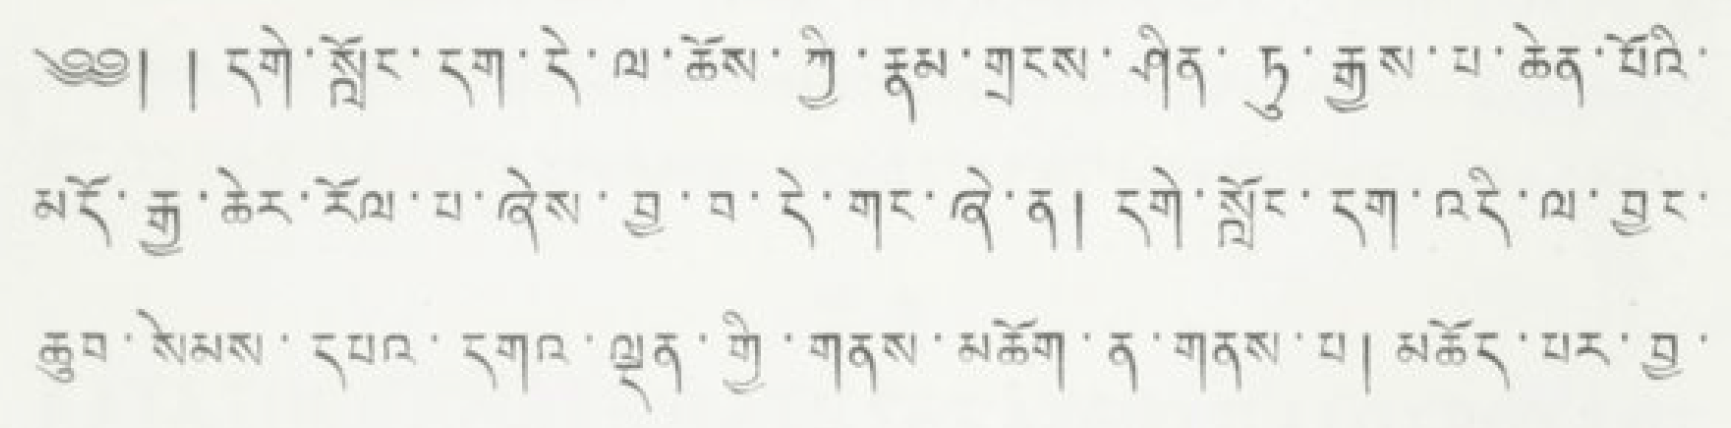 ༄༅། །དགེ་སློང་དག་དེ་ལ་ཆོས་ཀྱི་རྣམ་གྲངས་ཤིན་ཏུ་རྒྱས་པ་ཆེན་པོའི་
མདོ་རྒྱ་ཆེར་རོལ་པ་ཞེས་བྱ་བ་དེ་གང་ཞེ་ན། དགེ་སློང་དག་འདི་ལ་བྱང་
ཆུབ་སེམས་དཔའ་དགའ་ལྡན་གྱི་གནས་མཆོག་ན་གནས་པ། མཆོད་པར་བྱ་